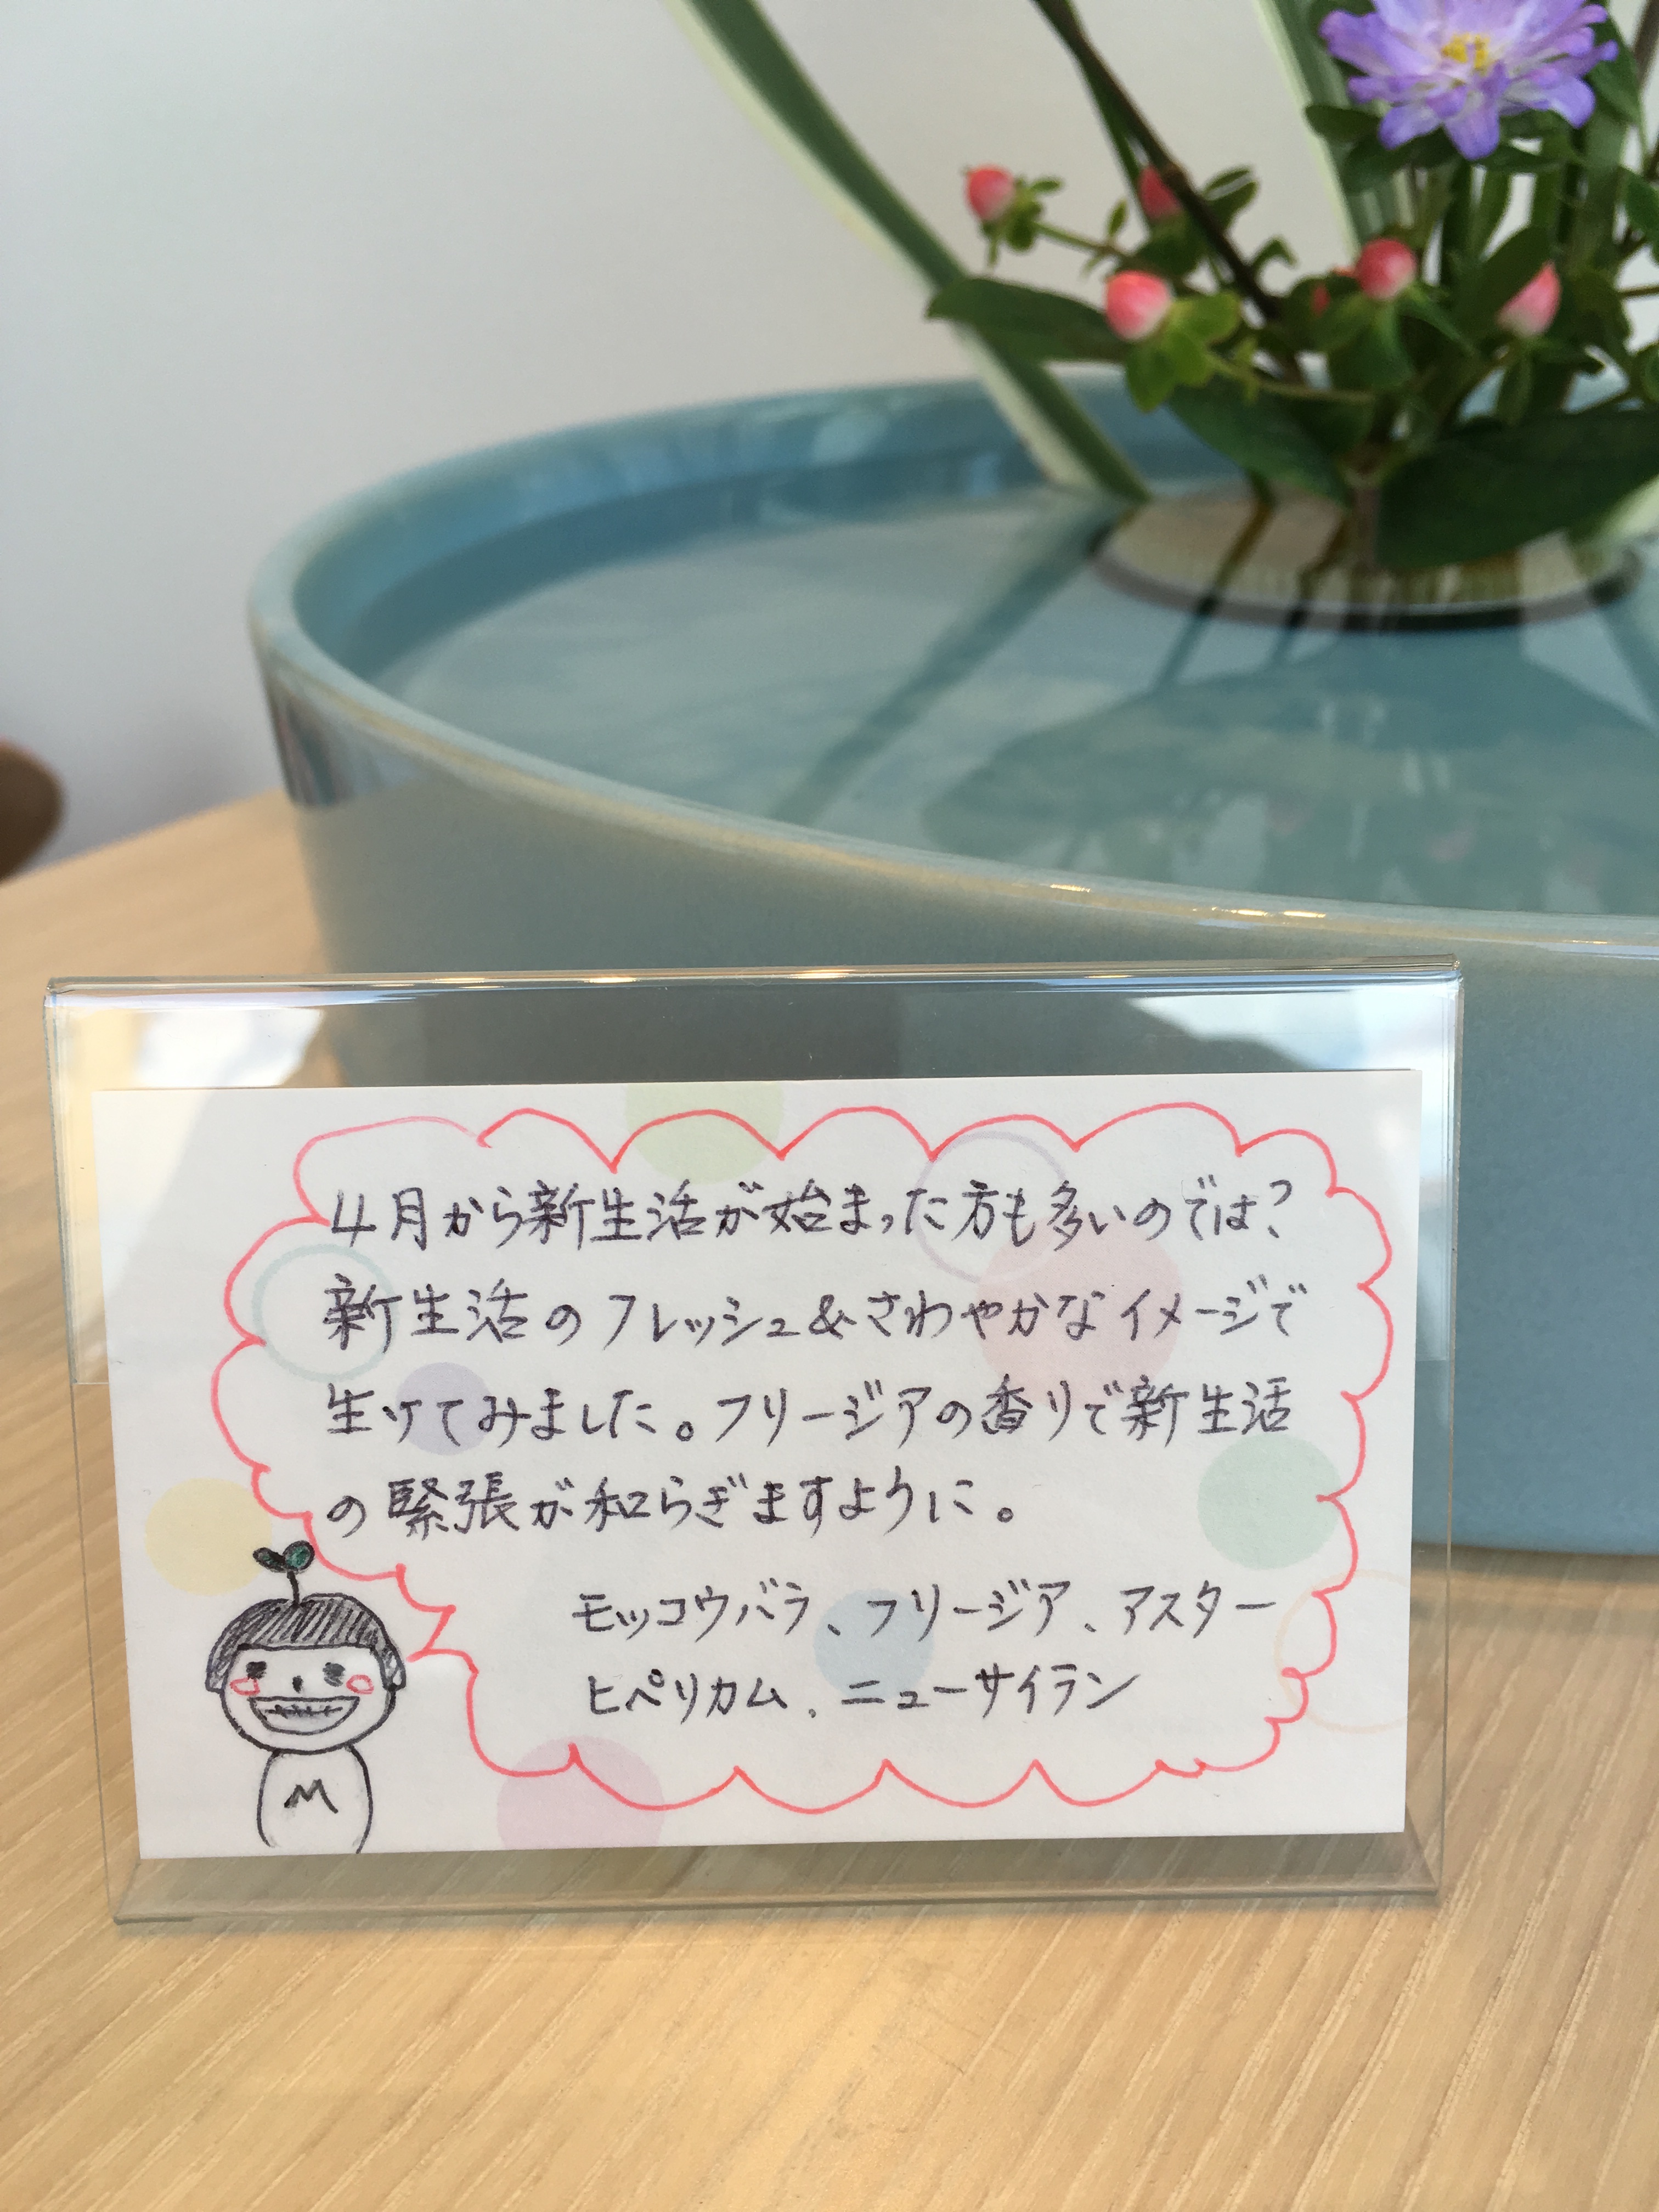 4月から新生活が始まった方も多いのでは?
新生活のフレッシュ&さわやかなイメージで
生けてみました。フリージアの香りで新生活
の緊張が和らぎますように。
モッコウバラ、フリージア、アスター
ヒペリカム、ニューサイラン
M